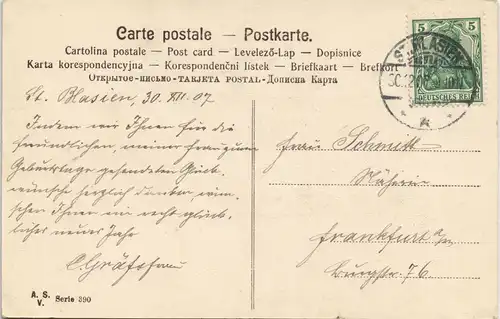 Carte postale – Postkarte.
Cartolina postale – Post card – Levelező-Lap – Dopisnice
Karta korespondencyjna – Korespondenční lístek – Briefkaart – Brefkort
Открытое-письмо – TARJETA POSTAL – Дописна Карта
St. Blasien, 30. XII. 07
Indem wir Ihnen für die
freundlichen, meiner Frau zum
Geburtstage gesendeten Glück-
wünsche herzlich danken, wün-
schen Ihnen ein recht glück-
liches neues Jahr
A. S.
V.
Serie 390
5 5
ST. BLASIEN
30.12.07
DEUTSCHES REICH
Frau Schmitt
Näherin
Frankfurt a/M
Burgstr. 76.